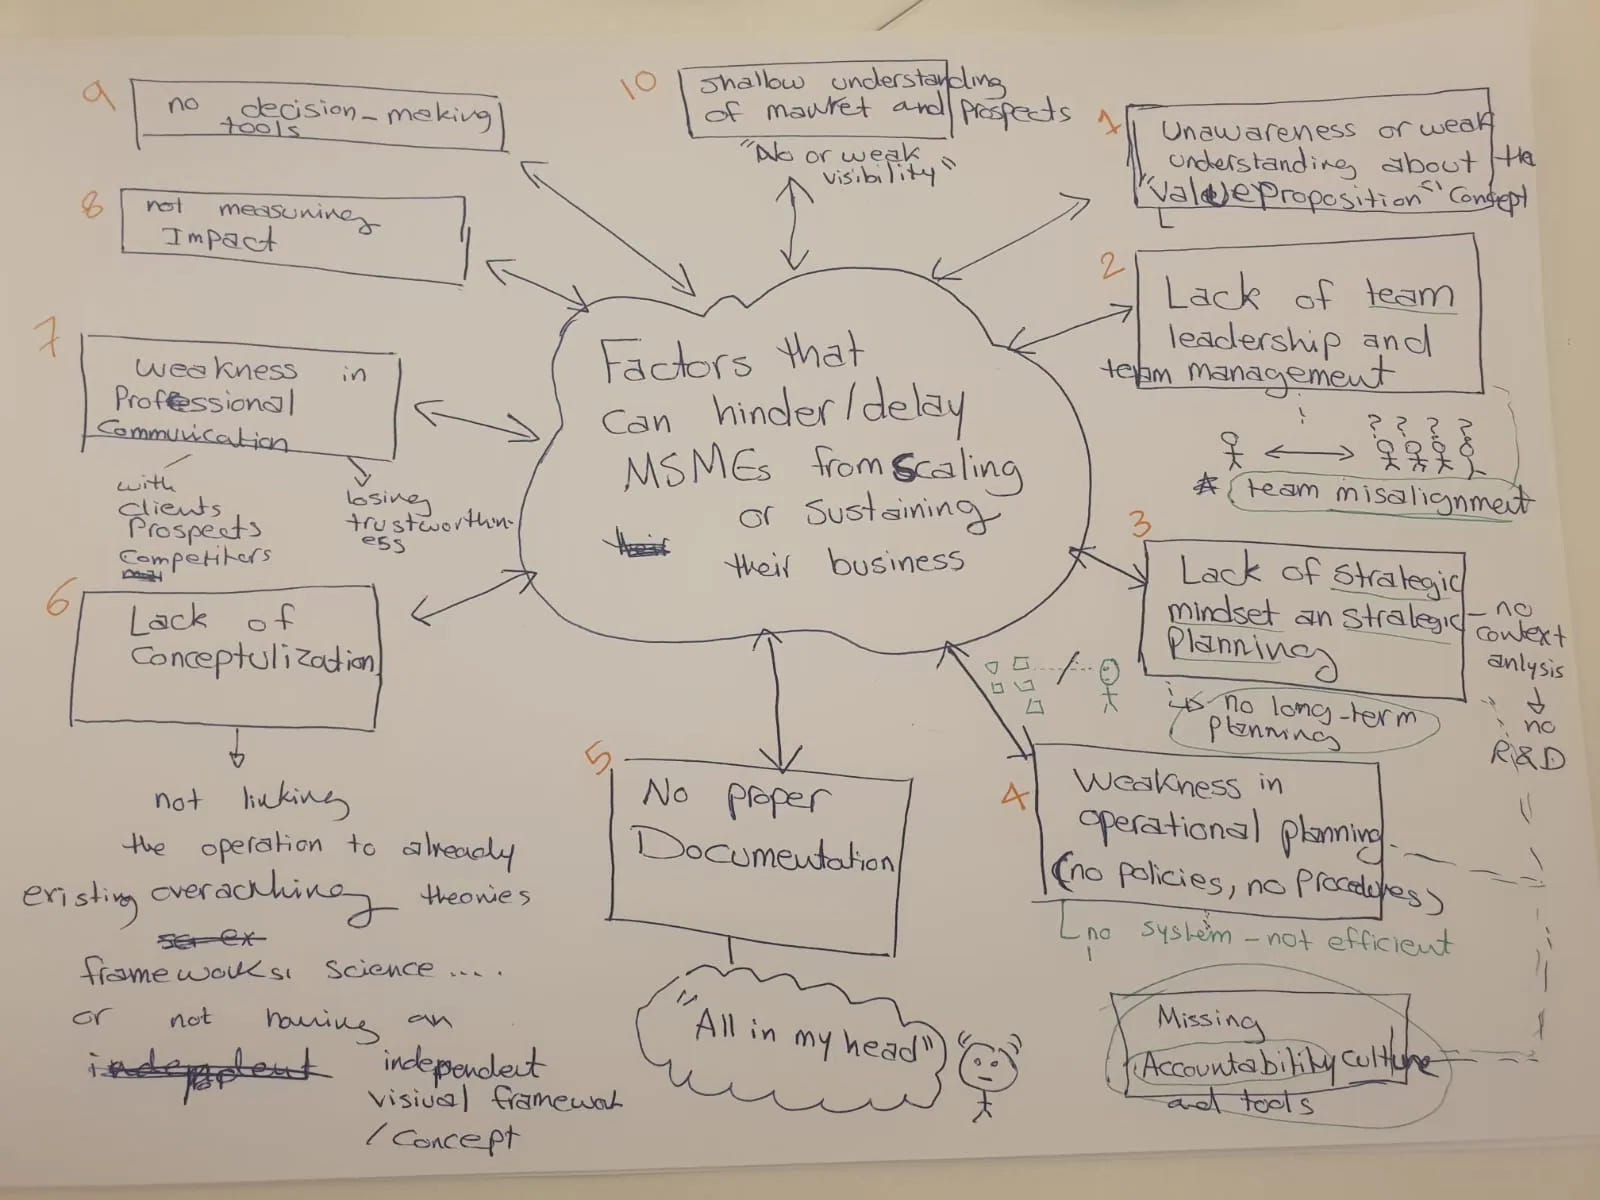 Factors that
can hinder/delay
MSMEs from scaling
or sustaining
their business
1
Unawareness or weak
understanding about the
"Value Proposition" concept
2
Lack of team
leadership and
team management
? ? ? ?
* team misalignment
3
Lack of strategic
mindset an strategic
Planning
no long-term
planning
no
context
anlysis
no
R&D
4
Weakness in
operational planning
(no policies, no procedures)
no system - not efficient
Missing
Accountability culture
and tools
5
No proper
Documentation
"All in my head"
6
Lack of
Conceptulization
not linking
the operation to already
existing overackhing theories
frameworks, science ....
or not having an
independent
visiual framework
/ Concept
7
weakness in
Professional
Communication
with
clients
Prospects
Competiters
losing
trustworthin-
ess
8
not measuring
Impact
9
no decision-making
tools
10
shallow understanding
of market and prospects
"No or weak
visibility"